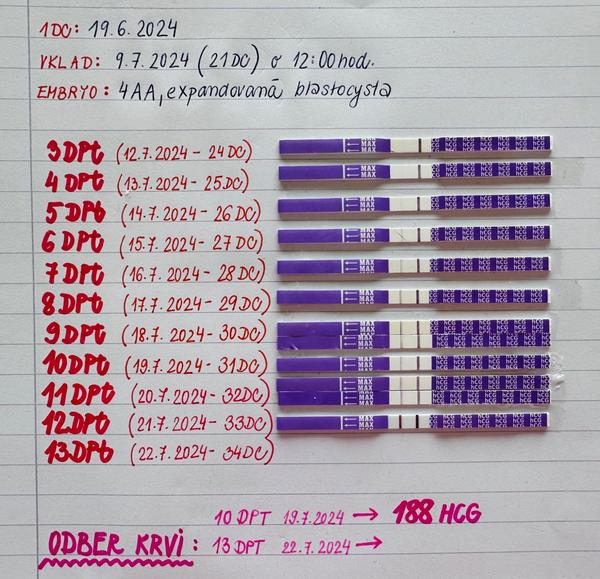 1DC: 19.6.2024
VKLAD: 9.7.2024 (21DC) o 12:00 hod.
EMBRYO: 4AA, expandovaná blastocysta
3DPt (12.7.2024 - 24DC)
4DPt (13.7.2024 - 25DC)
5DPt (14.7.2024 - 26DC)
6DPt (15.7.2024 - 27DC)
7DPt (16.7.2024 - 28DC)
8DPt (17.7.2024 - 29DC)
9DPt (18.7.2024 - 30DC)
10DPt (19.7.2024 - 31DC)
11DPt (20.7.2024 - 32DC)
12DPt (21.7.2024 - 33DC)
13DPt (22.7.2024 - 34DC)
10 DPT 19.7.2024 → 188 HCG
ODBER KRVI: 13 DPT 22.7.2024 →